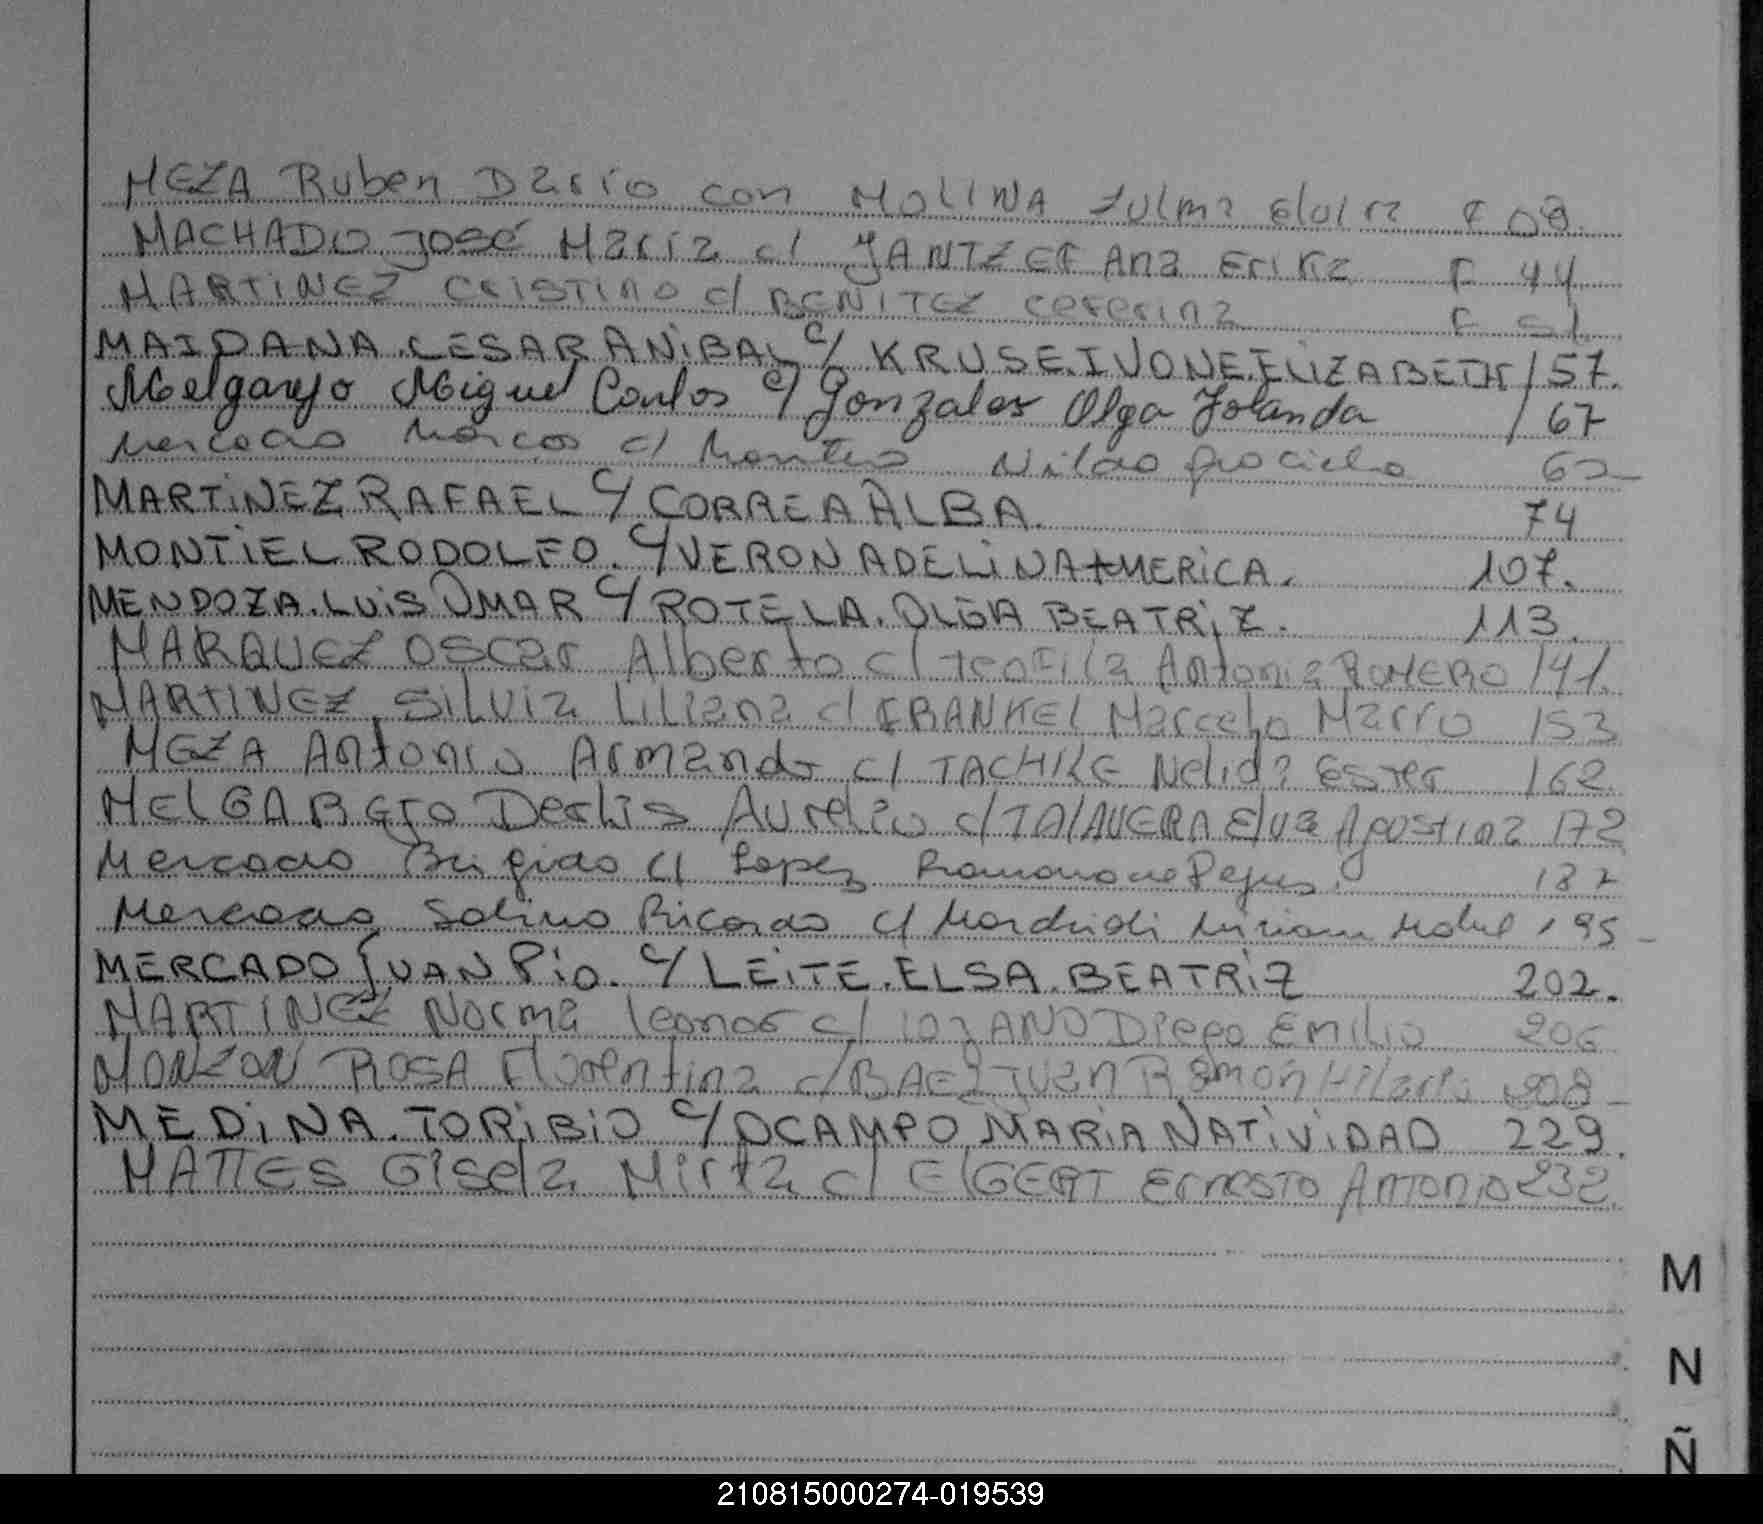 MEZA Ruben Dario con MOLINA Zulma Elvira F 08.
MACHADO José Maria c/ JANTZEF Ana Erika F 44
MARTINEZ CRISTINO c/ BENITEZ Ceferina F 51
MAIDANA. CESAR ANIBAL c/ KRUSE. IVONE. ELIZABETH / 57.
Melgarejo Miguel Carlos c/ Gonzales Olga Yolanda / 67
Mercado Marcos c/ Nilda 62
MARTINEZ RAFAEL c/ CORREA ALBA. 74
MONTIEL RODOLFO. c/ VERON ADELINA AMERICA. 107.
MENDOZA. LUIS OMAR c/ ROTELA. OLGA BEATRIZ. 113.
MARQUEZ OSCAR Alberto c/ Teofila Antonia ROMERO 141.
MARTINEZ, SILVIA Liliana c/ FRANKEL Marcelo Mario 153
MEZA Antonio Armando c/ TACHILE Nelida Ester 162
MELGAREJO Derlis Aurelio c/ TALAVERA Elva Agostina 172
Mercado Brigido c/ Lopez Ramona de Jesus. 187
Mercado, Sabino Ricardo c/ Miriam Mabel 195-
MERCADO JUAN PIO. c/ LEITE. ELSA. BEATRIZ 202.
MARTINEZ Norma Leonor c/ LOZANO Diego Emilio 206
MONZON ROSA Florentina c/ BAEZ Juan Ramón Hilario 208 -
MEDINA. TORIBIO c/ OCAMPO MARIA NATIVIDAD 229.
MATTES Gisela Mirta c/ ELGERT Ernesto Antonio 232.
M
N
Ñ
210815000274-019539